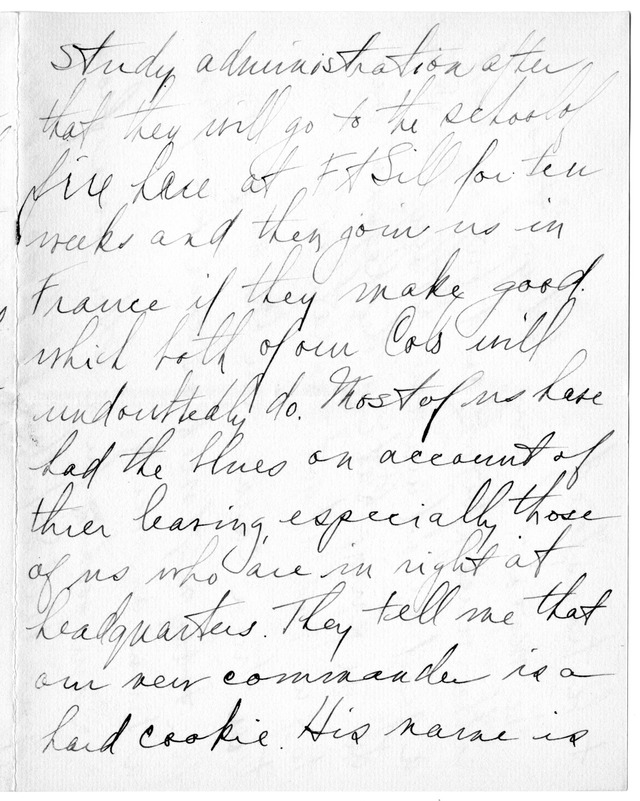 Study administration after
that they will go to the school of
fire here at Ft Sill for ten
weeks and then join us in
France if they make good.
which both of our Cols will
undoubtedly do. Most of us have
had the blues on account of
thier leaving, especially those
of us who are in right at
headquarters. They tell me that
our new commander is a
hard cookie. His name is